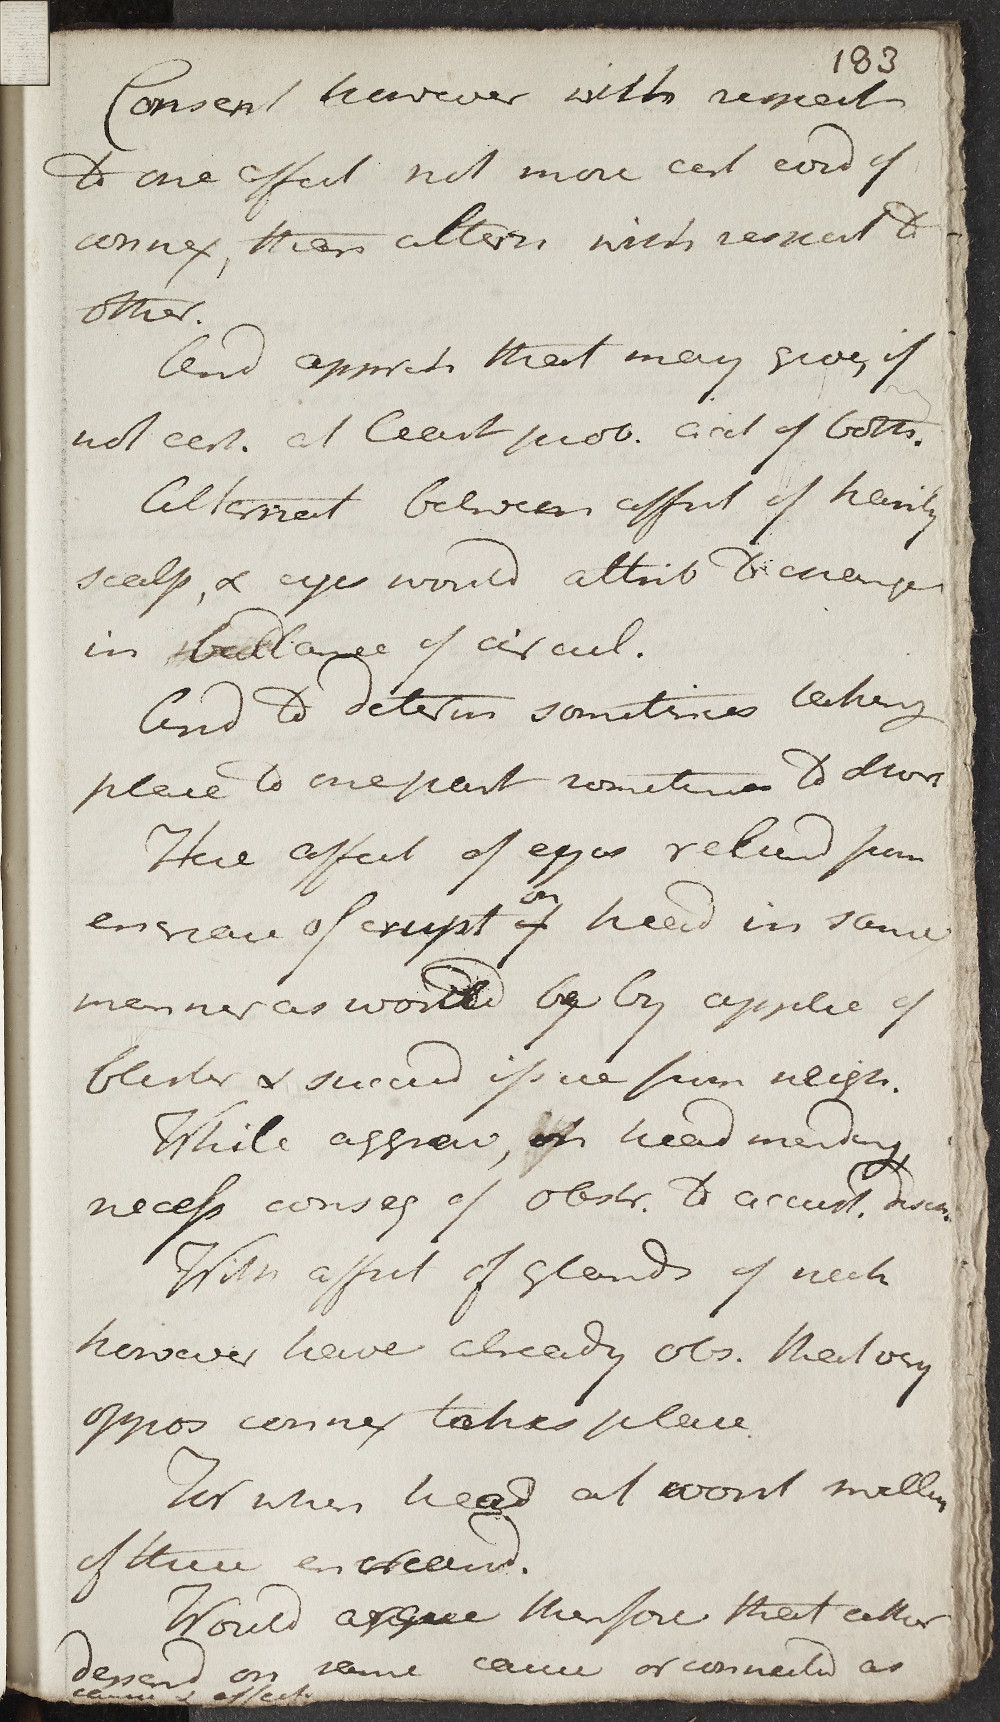 183
Consent however with respect
to one affect not more cert evid of
connex, than altern with respect to
other.
And appreh that may give, if
not cert. at least prob. acct of both.
Alternat between affect of hairy
scalp, & eyes would attrib to change
in ballance of circul.
And to determ sometimes taking
place to one part sometimes to other
Here affect of eyes reliev'd from
encrease of erupt on of head in same
manner as would be by applic of
blister & succeed issue from neigh.
While aggrav, on head mending,
necess conseq of obstr. to accust. disch.
With affect of glands of neck
however have already obs. that very
oppos connex takes place
For when head at worst swelling
of these encreas'd.
Would argue therefore that either
depend on same cause or connected as
cause & effect.